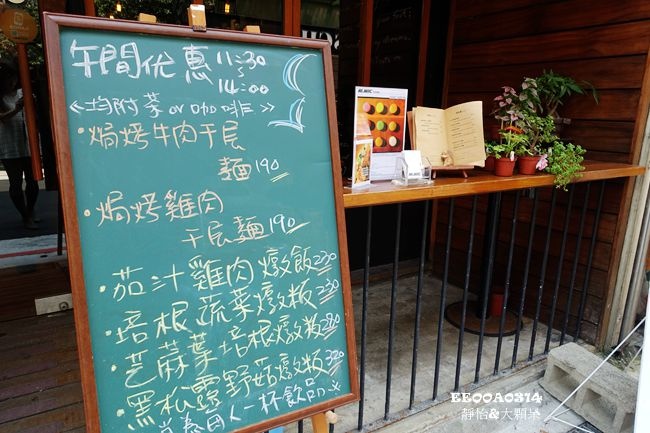 午間优惠 11:30
〜
14:00
<均附茶or咖啡>>
·焗烤牛肉千层
麵190
·焗烤雞肉
千层麵190
·茄汁雞肉燉飯230
·培根蔬菜燉飯230
·芝麻葉培根燉飯280
·黑松露野菇燉飯320
EE00A0314
靜怡&大顆呆